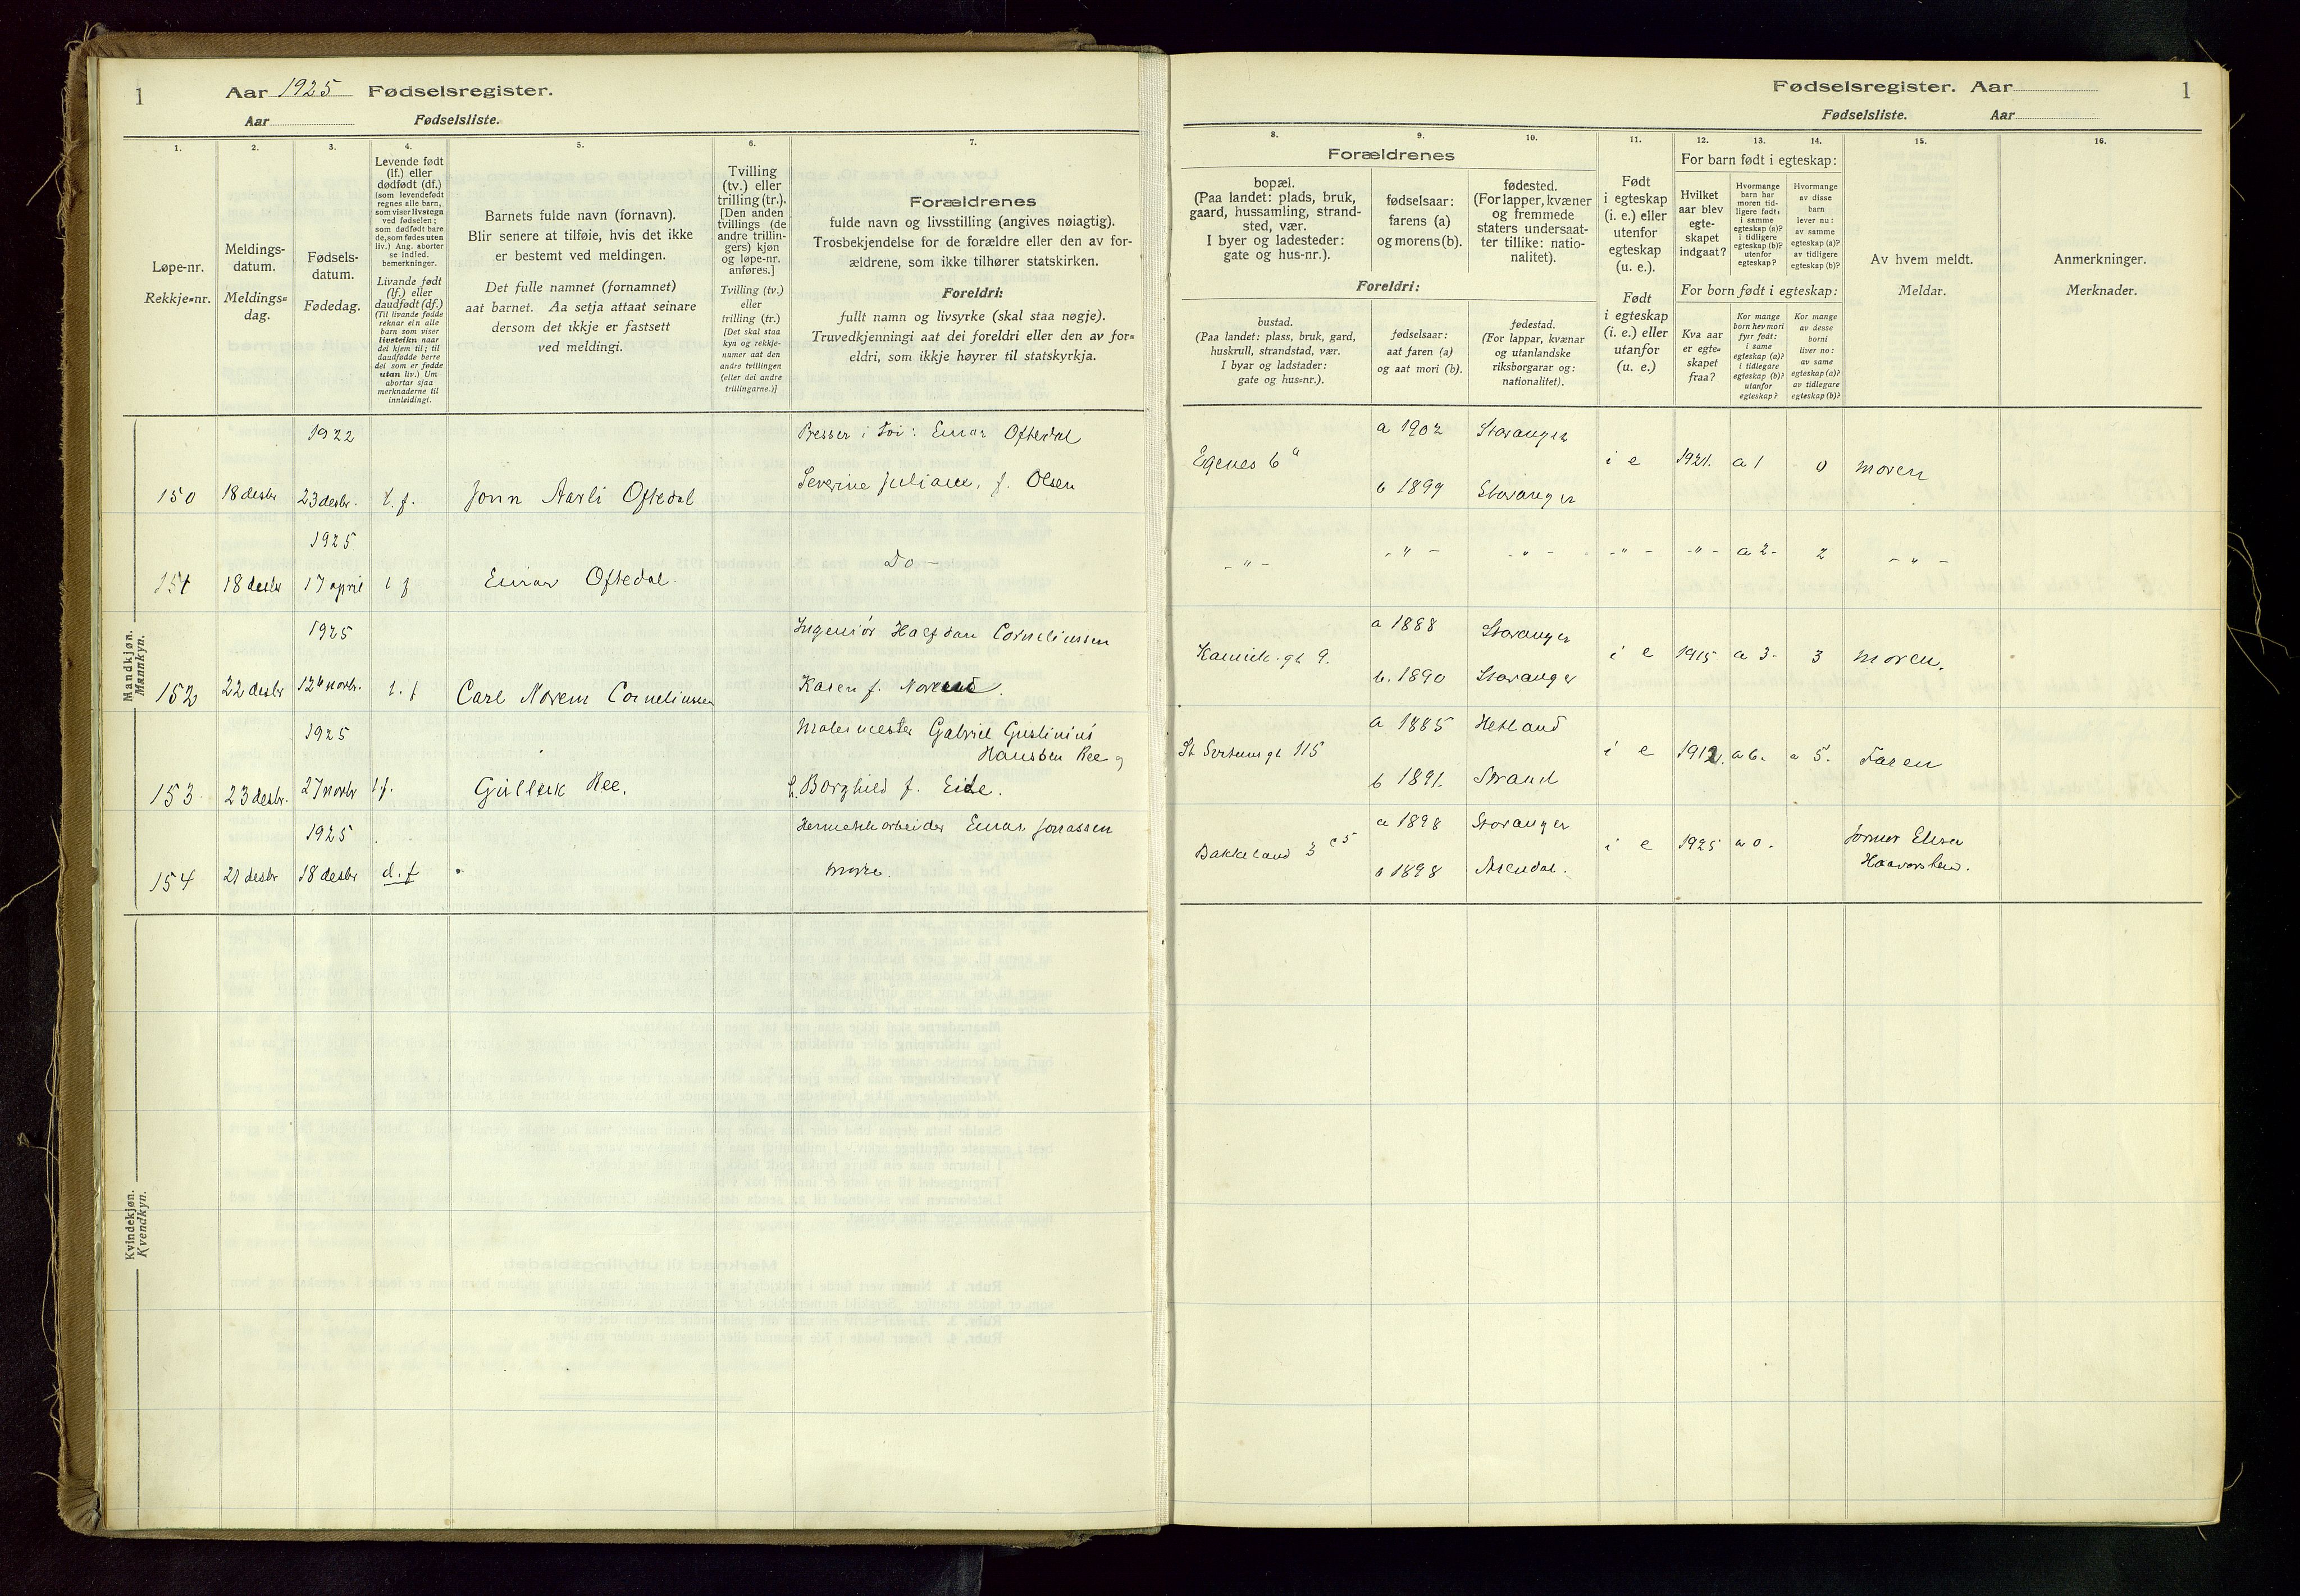 1
Aar 1925 Fødselsregister.
Aar Fødselsliste.
1. 2. 3. 4. 5. 6. 7.
Løpe-nr.
Rekkje-nr.
Meldings-
datum.
Meldings-
dag.
Fødsels-
datum.
Fødedag.
Levende født
(lf.) eller
dødfødt (df.)
(som levendefødt
regnes alle barn,
som viser livstegn
ved fødselen;
som dødfødt bare
de, som fødes uten
liv.) Ang. aborter
se indled.
bemerkninger.
Livande født
(lf.) eller
daudfødt (df.)
(Til livande fødde
reknar ein alle
born som viser
livsteikn naar
dei kjem til; til
daudfødde berre
dei som er fødde
utan liv.) Um
abortar sjaa
merknaderne til
innleidingi.
Barnets fulde navn (fornavn).
Blir senere at tilføie, hvis det ikke
er bestemt ved meldingen.
Det fulle namnet (fornamnet)
aat barnet. Aa setja attaat seinare
dersom det ikkje er fastsett
ved meldingi.
Tvilling
(tv.) eller
trilling (tr.).
[Den anden
tvillings (de
andre trillin-
gers) kjøn
og løpe-nr.
anføres.]
Tvilling (tv.)
eller
trilling (tr.)
[Det skal staa
kyn og rekkje-
numer aat den
andre tvillingen
(eller dei andre
trillingarne.)]
Forældrenes
fulde navn og livsstilling (angives nøiagtig).
Trosbekjendelse for de forældre eller den av for-
ældrene, som ikke tilhører statskirken.
Foreldri:
fullt namn og livsyrke (skal staa nøgje).
Truvedkjenningi aat dei foreldri eller den av for-
eldri, som ikkje høyrer til statskyrkja.
Mandkjøn.
Mannkyn.
1922
Einar Oftedal
150 18 desbr 23 desbr. l. f. Jonn Aarli Oftedal
Severine Juliane, f. Olsen
1925
Do
151 18 desbr 17 april l f Einar Oftedal.
1925
Ingeniør Halfdan Corneliussen
152 22 desbr 12 novbr. l. f Carl Norem Corneliussen
Karen f.
1925
Malermester Gabriel
Hanssen Ree og
153 23 desbr. 27 novbr l f. Gullerk Ree.
h. Borghild f. Eide.
1925
Hermetikarbeider Einar Jonassen
154 21 desbr 18 desbr d. f
Kvindekjøn.
Kvendkyn.
Fødselsregister. Aar
1
Fødselsliste. Aar
8. 9. 10. 11. 12. 13. 14. 15. 16.
Forældrenes
bopæl.
(Paa landet: plads, bruk,
gaard, hussamling, strand-
sted, vær.
I byer og ladesteder:
gate og hus-nr.).
fødselsaar:
farens (a)
og morens (b).
fødested.
(For lapper, kvæner
og fremmede
staters undersaat-
ter tillike: natio-
nalitet).
Foreldri:
bustad.
(Paa landet: plass, bruk, gard,
huskrull, strandstad, vær.
I byar og ladstader:
gate og hus-nr.).
fødselsaar:
aat faren (a)
og aat mori (b).
fødestad.
(For lappar, kvænar
og utanlandske
riksborgarar og:
nationalitet).
Født
i egteskap
(i. e.) eller
utenfor
egteskap
(u. e.).
Født
i egteskap
(i. e.) eller
utanfor
(u. e.)
For barn født i egteskap:
Hvilket
aar blev
egte-
skapet
indgaat?
Hvormange
barn har
moren tid-
ligere født:
i samme
egteskap (a)?
i tidligere
egteskap (b)?
utenfor
egteskap?
Hvormange
av disse
barn
lever nu:
av samme
egteskap (a)?
av tidligere
egteskap (b)?
For born født i egteskap:
Kva aar
er egte-
skapet
fraa?
Kor mange
born hev mori
fyrr født:
i same
egteskap (a)?
i tidlegare
egteskap (b)?
utanfor
egteskap?
Kor mange
av desse
borni
liver no:
av same
egteskap (a)?
av tidlegare
egteskap (b)?
Av hvem meldt.
Meldar.
Anmerkninger.
Merknader.
Egenes 6a a 1902 Stavanger i e 1921. a 1 0 moren
b 1899 Stavanger
- " - - " - - " - - " - - " - a 2 - 2 - " -
a 1888 Stavanger
Kannik.gt 9. i e 1915. a 3 - 3 moren.
b. 1890 Stavanger
a 1885 Hetland
115 i e 1912. a 6. a 5. Faren
b 1891. Strand
a 1898 Stavanger
Bakkeland 3 i e 1925 a 0.
b 1898 Arendal.